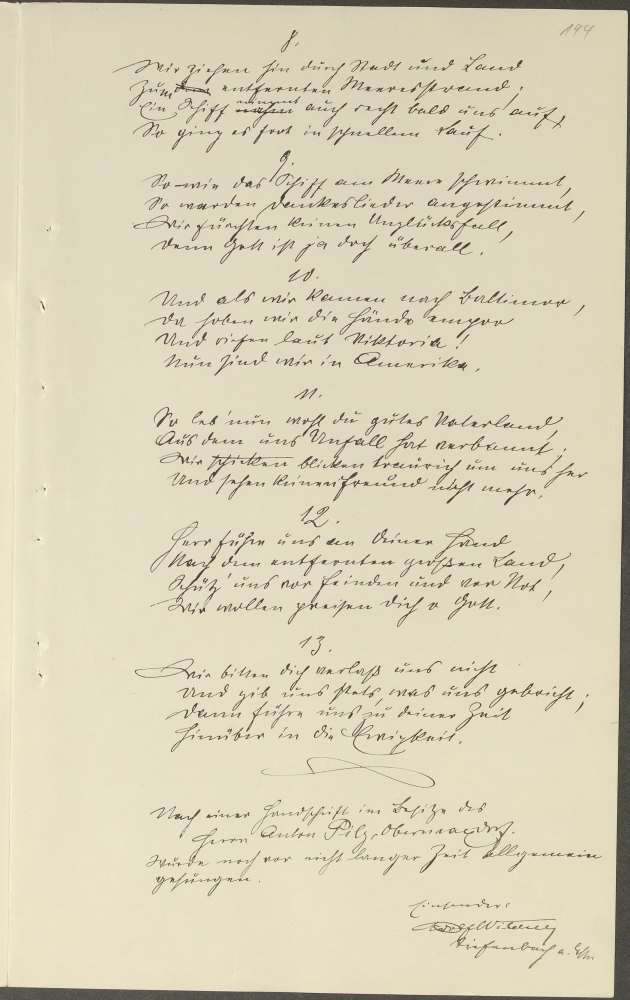 194
8.
Wir ziehen hin durch Stadt und Land
Zum dem entfernten Meeresstrand;
Ein Schiff nahm nimmt auch recht bald uns auf,
So ging es fort in schnellem Lauf.
9.
So wie das Schiff am Meere schwimmt,
So werden Dankeslieder angestimmt,
Wir fürchten keinen Unglücksfall,
Denn Gott ist ja doch überall.
10.
Und als wir kamen nach Baltimor,
Da hoben wir die Hände empor
Und riefen laut Viktoria!
Nun sind wir in Amerika.
11.
So leb' nun wohl du gutes Vaterland,
Aus dem uns Unfall hat verbannt;
Wir schicken blicken traurich um uns her
Und sehen keinen Freund nicht mehr.
12.
Herr führe uns an deiner Hand
Nach dem entfernten großen Land,
Schütz' uns vor Feinden und vor Not,
Wir wollen preisen dich o Gott.
13.
Wir bitten dich verlaß uns nicht
Und gib uns stets, was uns gebricht;
Dann führe uns zu deiner Zeit
Hinüber in die Ewigkeit.
Nach einer Handschrift im Besitze des
Herrn Anton Pilz,
Wurde noch vor nicht langer Zeit allgemein
gesungen.
Einsender:
Tiefenbach a.